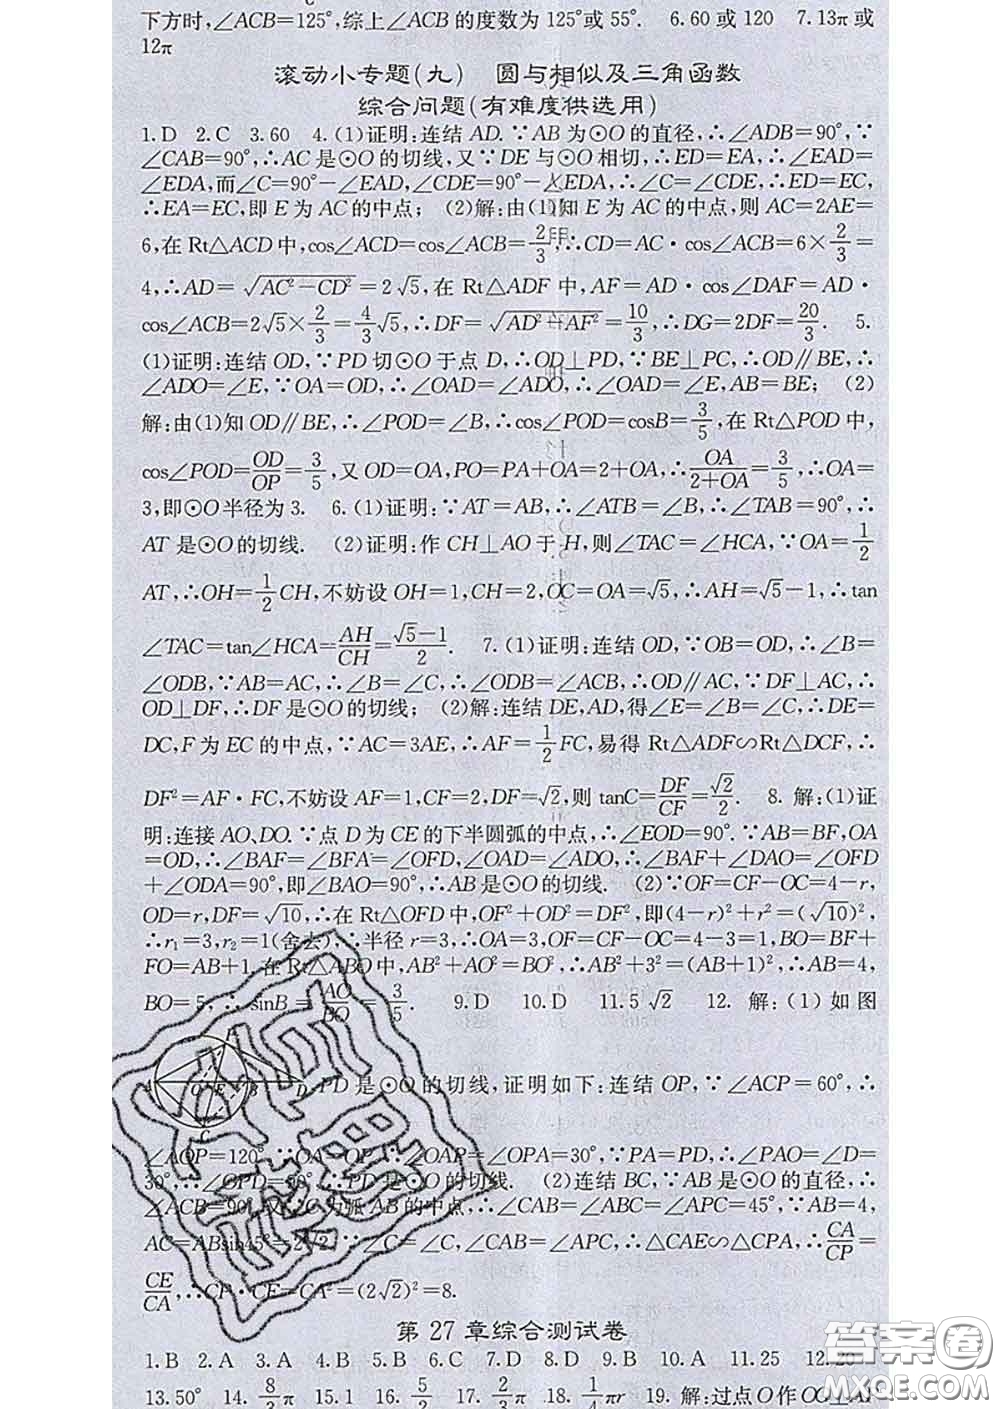 下方时,∠ACB=125°,综上∠ACB的度数为125°或55°.  6.60或120  7.13π或
12π
滚动小专题(九)  圆与相似及三角函数
综合问题(有难度供选用)
1.D  2.C  3.60  4.(1)证明:连结AD.∵AB为⊙O的直径,∴∠ADB=90°,∵
∠CAB=90°,∴AC是⊙O的切线,又∵DE与⊙O相切,∴ED=EA,∴∠EAD=
∠EDA,而∠C=90°-∠EAD,∠CDE=90°-∠EDA,∴∠C=∠CDE,∴ED=EC,
∴EA=EC,即E为AC的中点;  (2)解:由(1)知E为AC的中点,则AC=2AE=
6,在Rt△ACD中,cos∠ACD=cos∠ACB=2/3,∴CD=AC·cos∠ACB=6×2/3=
4,∴AD=√(AC²-CD²)=2√5,在Rt△ADF中,AF=AD·cos∠DAF=AD·
cos∠ACB=2√5×2/3=4/3√5,∴DF=√(AD²-AF²)=10/3,∴DG=2DF=20/3.  5.
(1)证明:连结OD,∵PD切⊙O于点D,∴OD⊥PD,∵BE⊥PC,∴OD∥BE,∴
∠ADO=∠E,∵OA=OD,∴∠OAD=∠ADO,∴∠OAD=∠E,AB=BE;  (2)
解:由(1)知OD∥BE,∴∠POD=∠B,∴cos∠POD=cosB=3/5,在Rt△POD中,
cos∠POD=OD/OP=3/5,又OD=OA,PO=PA+OA=2+OA,∴OA/(2+OA)=3/5,∴OA=
3,即⊙O半径为3.  6.(1)证明:∵AT=AB,∴∠ATB=∠B,∴∠TAB=90°,∴
AT是⊙O的切线.  (2)证明:作CH⊥AO于H,则∠TAC=∠HCA,∵OA=1/2
AT,∴OH=1/2CH,不妨设OH=1,CH=2,OC=OA=√5,∴AH=√5-1,∴tan
∠TAC=tan∠HCA=AH/CH=(√5-1)/2.  7.(1)证明:连结OD,∵OB=OD,∴∠B=
∠ODB,∵AB=AC,∴∠B=∠C,∴∠ODB=∠ACB,∴OD∥AC,∵DF⊥AC,∴
OD⊥DF,∴DF是⊙O的切线;  (2)解:连结DE,AD,得∠E=∠B=∠C,∴DE=
DC,F为EC的中点,∵AC=3AE,∴AF=1/2FC,易得Rt△ADF∽Rt△DCF,∴
DF²=AF·FC,不妨设AF=1,CF=2,DF=√2,则tanC=DF/CF=√2/2.  8.解:(1)证
明:连接AO、DO.∵点D为CE的下半圆弧的中点,∴∠EOD=90°.∵AB=BF,OA
=OD,∴∠BAF=∠BFA=∠OFD,∠OAD=∠ADO,∴∠BAF+∠DAO=∠OFD
+∠ODA=90°,即∠BAO=90°,∴AB是⊙O的切线.  (2)∵OF=CF-OC=4-r,
OD=r,DF=√10,∴在Rt△OFD中,OF²+OD²=DF²,即(4-r)²+r²=(√10)²,
∴r₁=3,r₂=1(舍去),∴半径r=3,∴OA=3,OF=CF-OC=4-3=1,BO=BF+
FO=AB+1.在Rt△ABO中,AB²+AO²=BO²,∴AB²+3²=(AB+1)²,∴AB=4,
BO=5,∴sinB=AO/BO=3/5.  9.D  10.D  11.5√2  12.解:(1)如图
PD是⊙O的切线,证明如下:连结OP,∵∠ACP=60°,∴
∠AOP=120°,∵OA=OP,∴∠OAP=∠OPA=30°,∵PA=PD,∴∠PAO=∠D=
30°,∴∠OPD=90°,∴PD是⊙O的切线.  (2)连结BC,∵AB是⊙O的直径,∴
∠ACB=90°,又∵C为弧AB的中点,∴∠CAB=∠ABC=∠APC=45°,∵AB=4,
AC=ABsin45°=2√2,∵∠C=∠C,∠CAB=∠APC,∴△CAE∽△CPA,∴CA/CP=
CE/CA,∴CP·CE=CA²=(2√2)²=8.
第27章综合测试卷
1.B  2.A  3.A  4.B  5.B  6.C  7.D  8.D  9.B  10.A  11.25  12.20
13.50°  14.8/3π  15.1  16.5/2  17.3/2π  18.1/4πr  19.解:过点O作OC⊥AP
答案圈
MXQE.COM